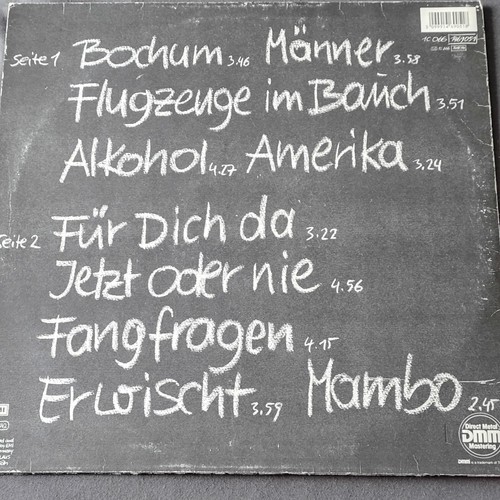 1C 066 1461051
Seite 1 Bochum 3.46 Männer 3.58
Flugzeuge im Bauch 3.51
Alkohol 4.27 Amerika 3.24
Seite 2 Für Dich da 3.22
Jetzt oder nie 4.56
Fangfragen 4.15
Erwischt 3.59 Mambo 2.45
Direct Metal
DMM
Mastering